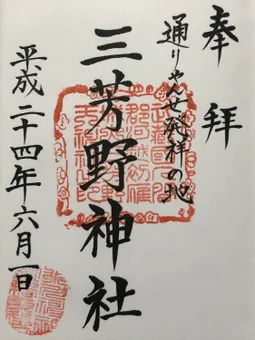 奉拝
通りゃんせ発祥の地
三芳野神社
平成二十四年六月一日